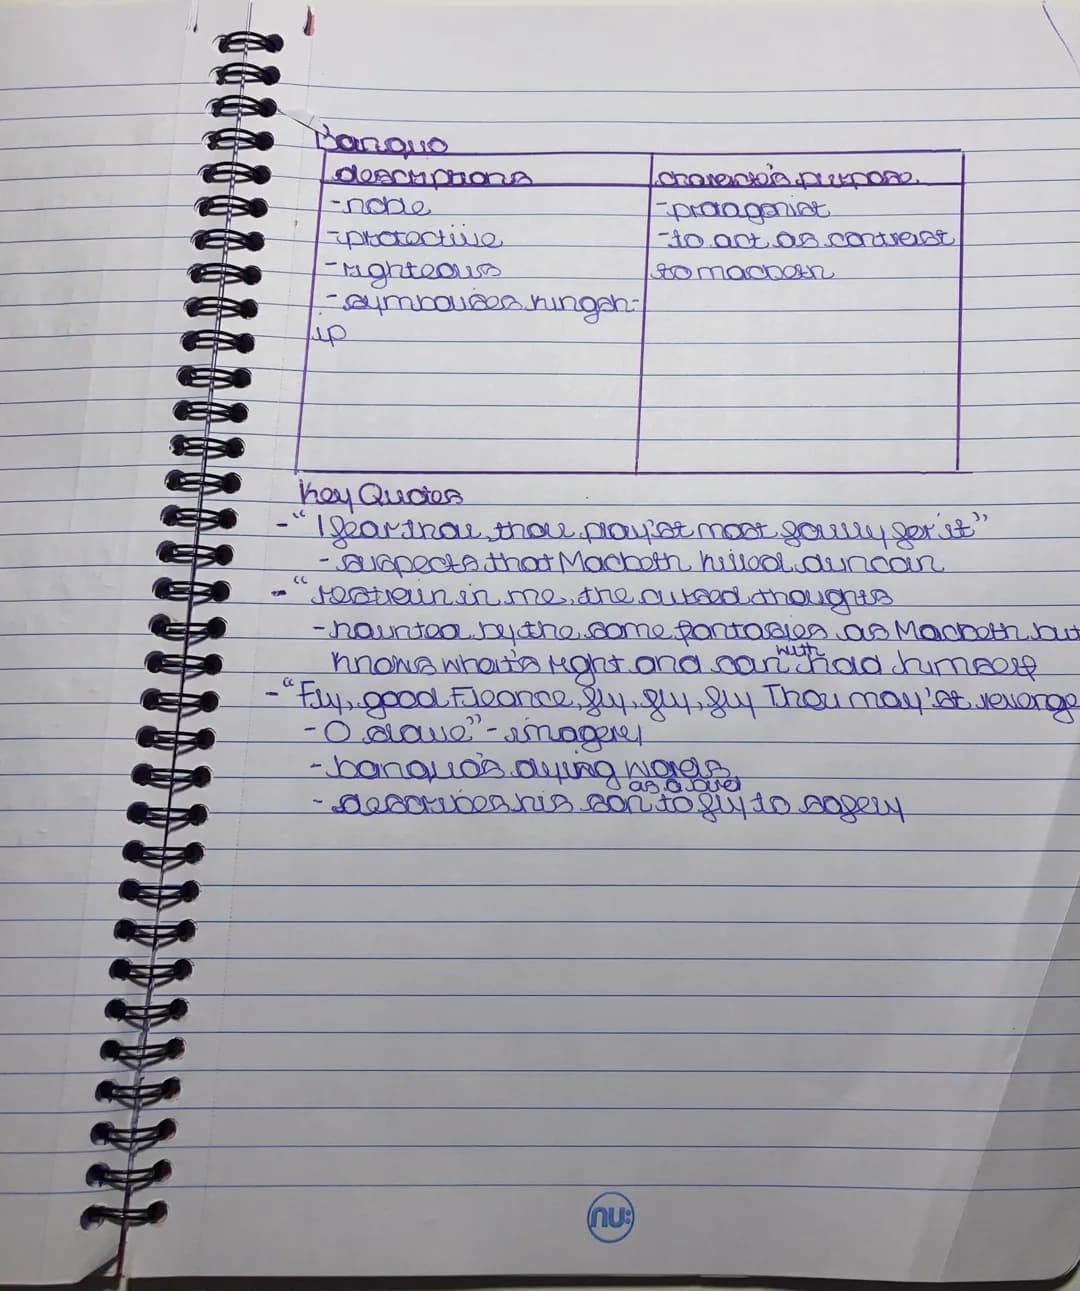 Banquo
descriptions character's purpose.
-noble -protagonist
-protective -to act as contrast
-righteous to macbeth
-symbolises kingsh-
ip
Key Quotes
-"I fear thou, thou play'st most foully for it"
-suspects that Macbeth killed duncan
-"restrain in me, the cursed thoughts
-haunted by the same fantasies as Macbeth but
knows what's right and can with hold himself
-"Fly, good Fleance, fly, fly, fly Thou may'st revenge
-O slave" - imagery
-banquo's dying words
-describes his son as a bird to fly to safely
nu: